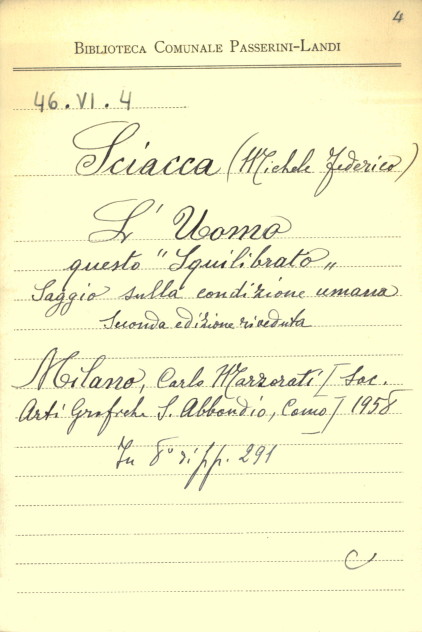 4
BIBLIOTECA COMUNALE PASSERINI-LANDI
46.VI.4
Sciacca (Michele Federico)
L'Uomo
questo "Squilibrato„
Saggio sulla condizione umana
Seconda edizione riveduta
Milano, Carlo Marzorati [Soc.
Arti Grafiche S. Abbondio, Como] 1958
In 8° di pp. 291
C